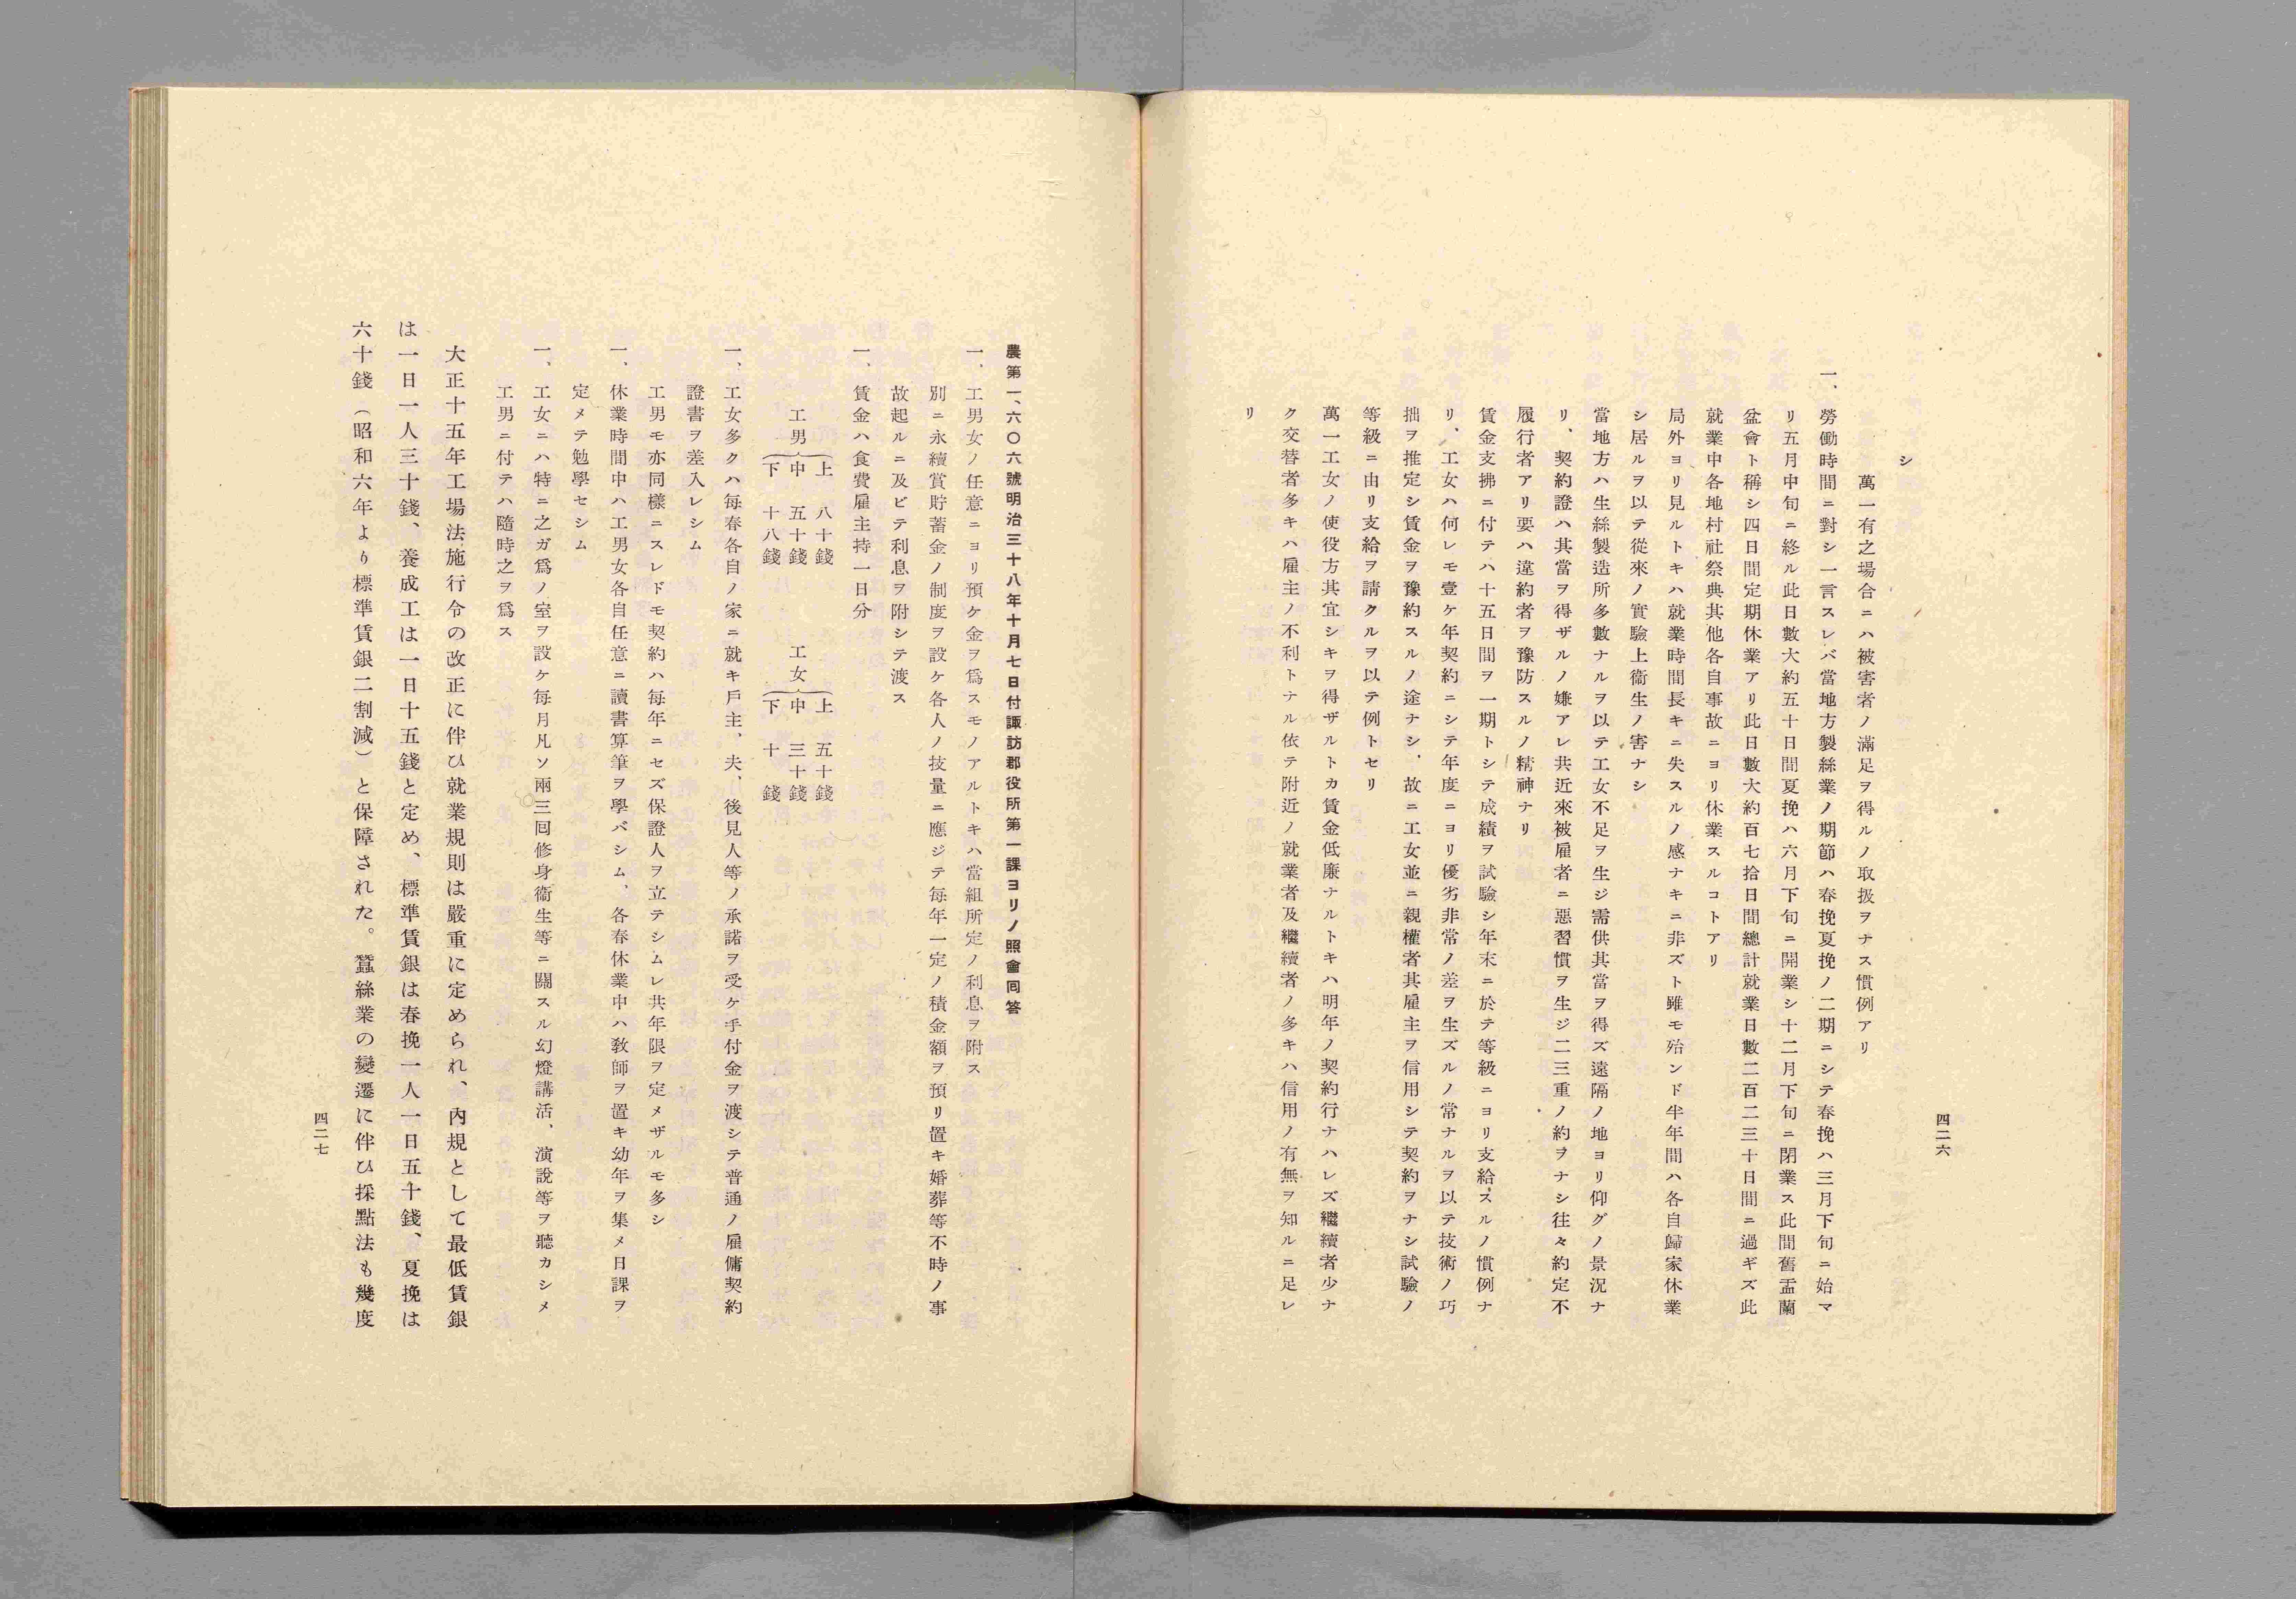 四二六
シ
萬一有之場合ニハ被害者ノ滿足ヲ得ルノ取扱ヲナス慣例アリ
一、勞働時間ニ對シ一言スレバ當地方製絲業ノ期節ハ春挽夏挽ノ二期ニシテ春挽ハ三月下旬ニ始マ
リ五月中旬ニ終ル此日數大約五十日間夏挽ハ六月下旬ニ開業シ十二月下旬ニ閉業ス此間舊盂蘭
盆會ト稱シ四日間定期休業アリ此日數大約百七拾日間總計就業日數二百二三十日間ニ過ギズ此
就業中各地村社祭典其他各自事故ニヨリ休業スルコトアリ
局外ヨリ見ルトキハ就業時間長キニ失スルノ感ナキニ非ズト雖モ殆ンド半年間ハ各自歸家休業
シ居ルヲ以テ從來ノ實驗上衞生ノ害ナシ
當地方ハ生絲製造所多數ナルヲ以テ工女不足ヲ生ジ需供其當ヲ得ズ遠隔ノ地ヨリ仰グノ景況ナ
リ、契約證ハ其當ヲ得ザルノ嫌アレ共近來被雇者ニ惡習慣ヲ生ジ二三重ノ約ヲナシ往々約定不
履行者アリ要ハ違約者ヲ豫防スルノ精神ナリ
賃金支拂ニ付テハ十五日間ヲ一期トシテ成績ヲ試驗シ年末ニ於テ等級ニヨリ支給スルノ慣例ナ
リ、工女ハ何レモ壹ケ年契約ニシテ年度ニヨリ優劣非常ノ差ヲ生ズルノ常ナルヲ以テ技術ノ巧
拙ヲ推定シ賃金ヲ豫約スルノ途ナシ、故ニ工女並ニ親權者其雇主ヲ信用シテ契約ヲナシ試驗ノ
等級ニ由リ支給ヲ請クルヲ以テ例トセリ
萬一工女ノ使役方其宜シキヲ得ザルトカ賃金低廉ナルトキハ明年ノ契約行ナハレズ繼續者少ナ
ク交替者多キハ雇主ノ不利トナル依テ附近ノ就業者及繼續者ノ多キハ信用ノ有無ヲ知ルニ足レ
リ
農第一、六〇六號明治三十八年十月七日付諏訪郡役所第一課ヨリノ照會囘答
一、工男女ノ任意ニヨリ預ケ金ヲ爲スモノアルトキハ當組所定ノ利息ヲ附ス
別ニ永續賞貯蓄金ノ制度ヲ設ケ各人ノ技量ニ應ジテ每年一定ノ積金額ヲ預リ置キ婚葬等不時ノ事
故起ルニ及ビテ利息ヲ附シテ渡ス
一、賃金ハ食費雇主持一日分
上 八十錢 上 五十錢
工男 中 五十錢 工女 中 三十錢
下 十八錢 下 十錢
一、工女多クハ每春各自ノ家ニ就キ戶主、夫、後見人等ノ承諾ヲ受ケ手付金ヲ渡シテ普通ノ雇傭契約
證書ヲ差入レシム
工男モ亦同樣ニスレドモ契約ハ每年ニセズ保證人ヲ立テシムレ共年限ヲ定メザルモ多シ
一、休業時間中ハ工男女各自任意ニ讀書算筆ヲ學バシム、各春休業中ハ敎師ヲ置キ幼年ヲ集メ日課ヲ
定メテ勉學セシム
一、工女ニハ特ニ之ガ爲ノ室ヲ設ケ每月凡ソ兩三囘修身衞生等ニ關スル幻燈講活、演說等ヲ聽カシメ
工男ニ付テハ隨時之ヲ爲ス
大正十五年工場法施行令の改正に伴ひ就業規則は嚴重に定められ、內規として最低賃銀
は一日一人三十錢、養成工は一日十五錢と定め、標準賃銀は春挽一人一日五十錢、夏挽は
六十錢（昭和六年より標準賃銀二割減）と保障された。蠶絲業の變遷に伴ひ採點法も幾度
四二七